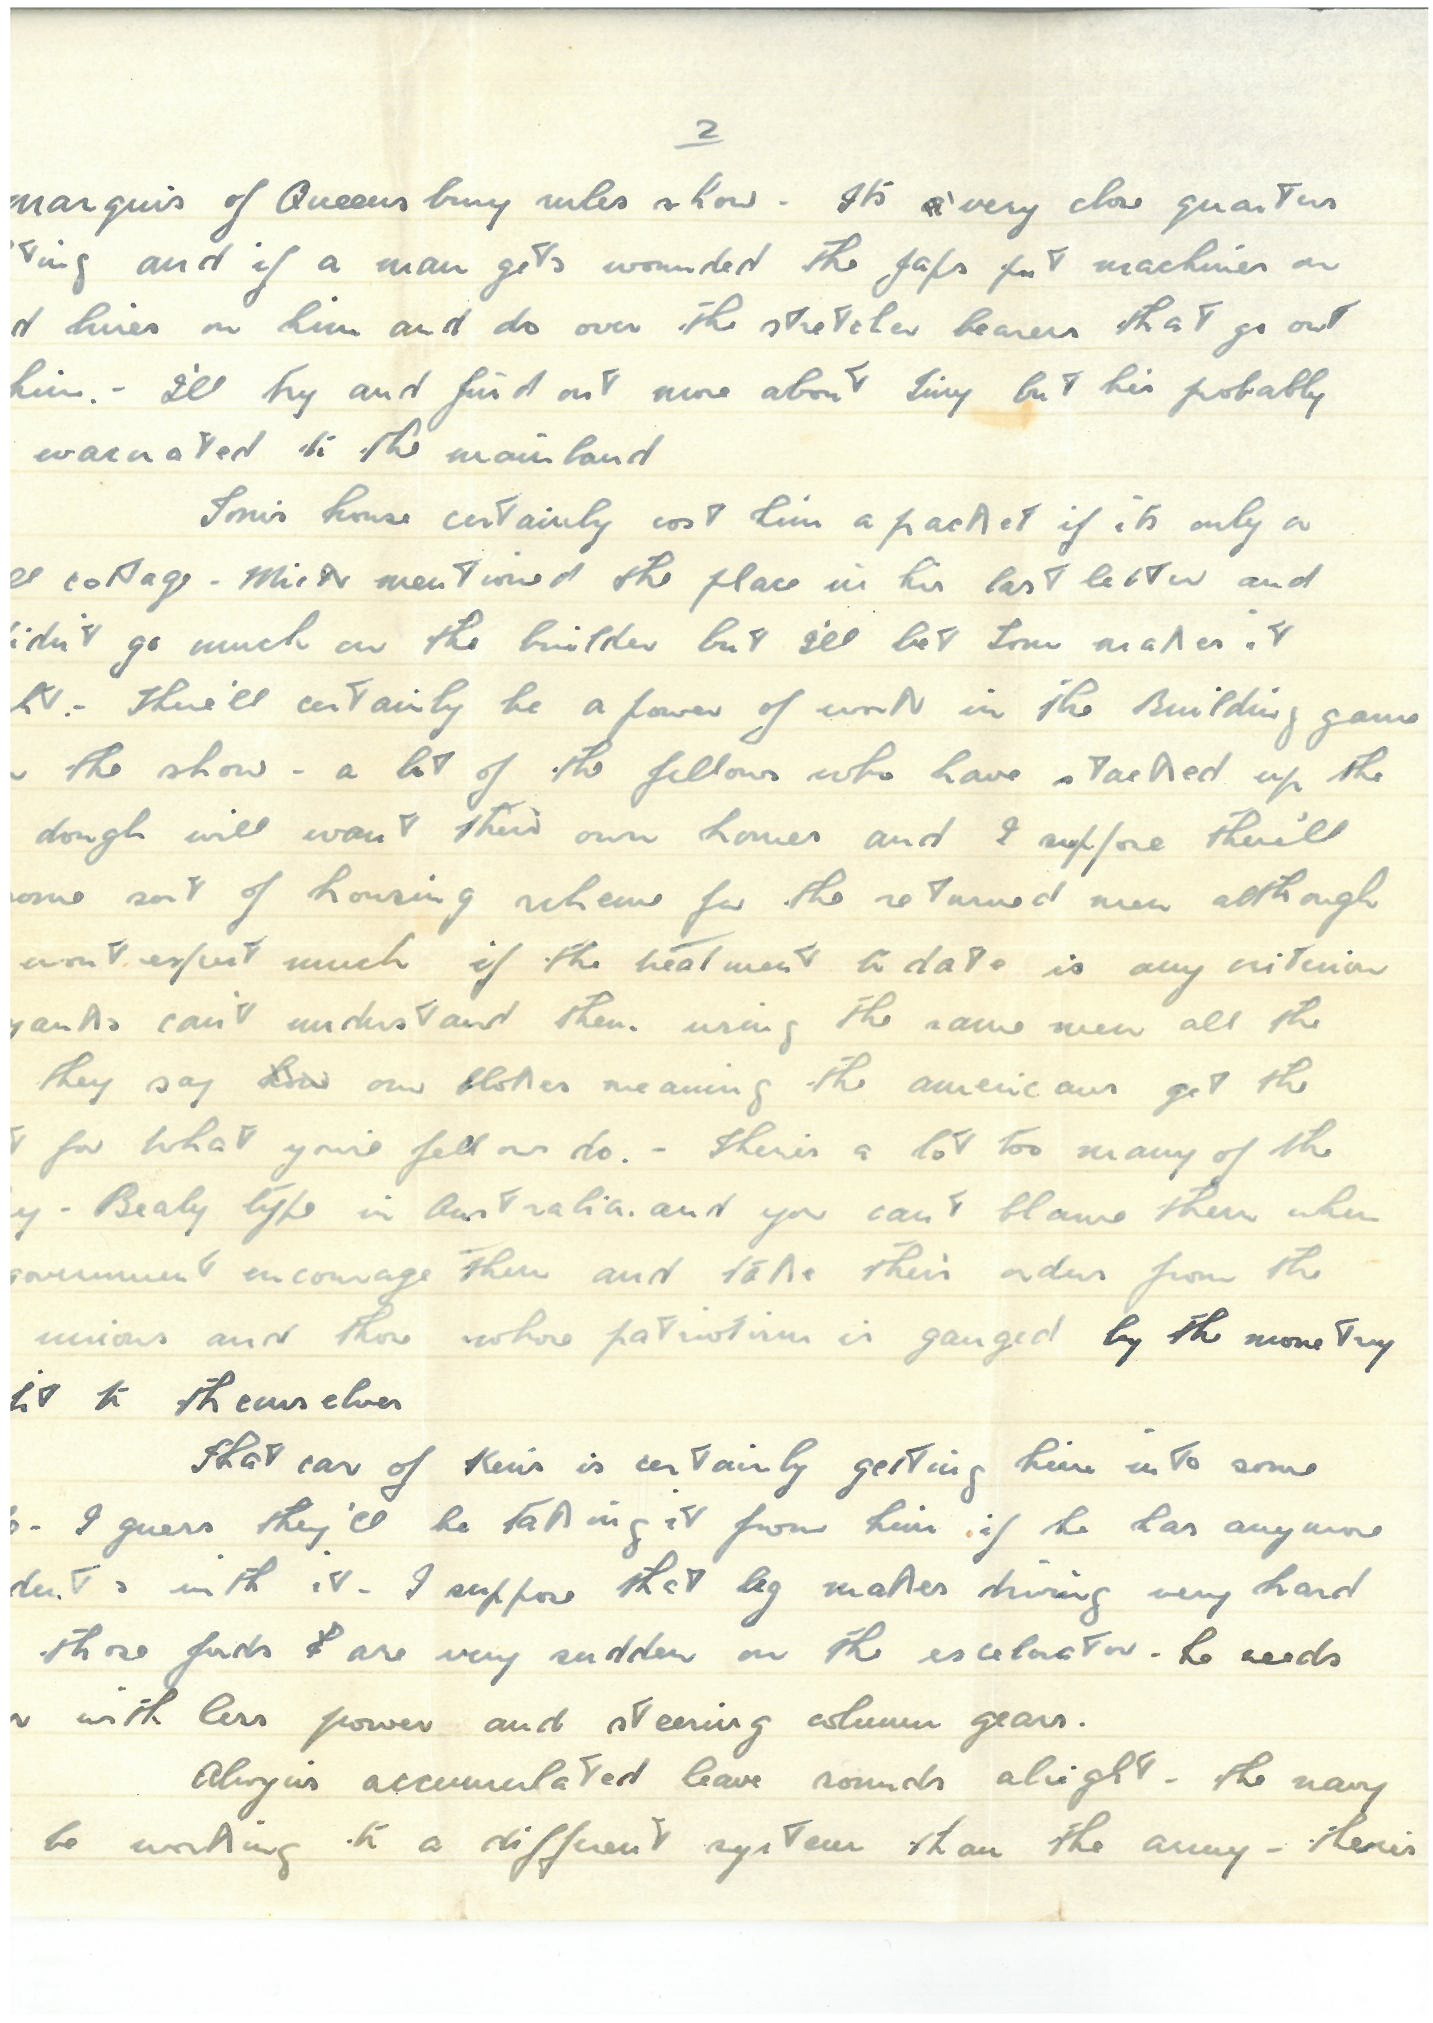 2
marquis of Queensbury rules show - Its very close quarters
ting and if a man gets wounded the Japs put machines on
d lines on him and do over the stretcher bearers that go out
him. - I'll try and find out more about Tiny but his probably
evacuated to the mainland
Tom's house certainly cost him a packet if its only a
ll cottage - Mick mentioned the place in his last letter and
didn't go much on the builder but I'll bet Tom makes it
- There'll certainly be a power of work in the Building game
the show - a lot of the fellows who have stacked up the
dough will want their own homes and I suppose there'll
some sort of housing scheme for the returned men although
wont expect much if the treatment to date is any criterion
yanks can't understand them using the same men all the
they say our blokes meaning the americans get the
t for what you're fellows do. - There's a lot too many of the
y - Bealy type in Australia. and you can't blame them when
government encourage them and take their orders from the
unions and those whose patriotism is gauged by the monetry
fit to themselves
That car of Ken's is certainly getting him into some
- I guess they'll be taking it from him if he has anymore
dents with it - I suppose that leg makes driving very hard
those fords are very sudden on the escelorator - he needs
with less power and steering column gears.
Aloyin's accumulated leave sounds alright - the navy
be working to a different system than the army - there's